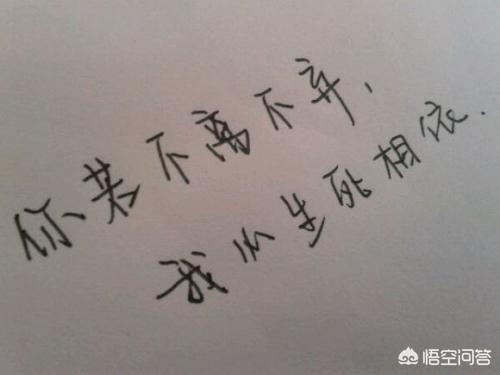 你若不离不弃、
我必生死相依.
悟空问答